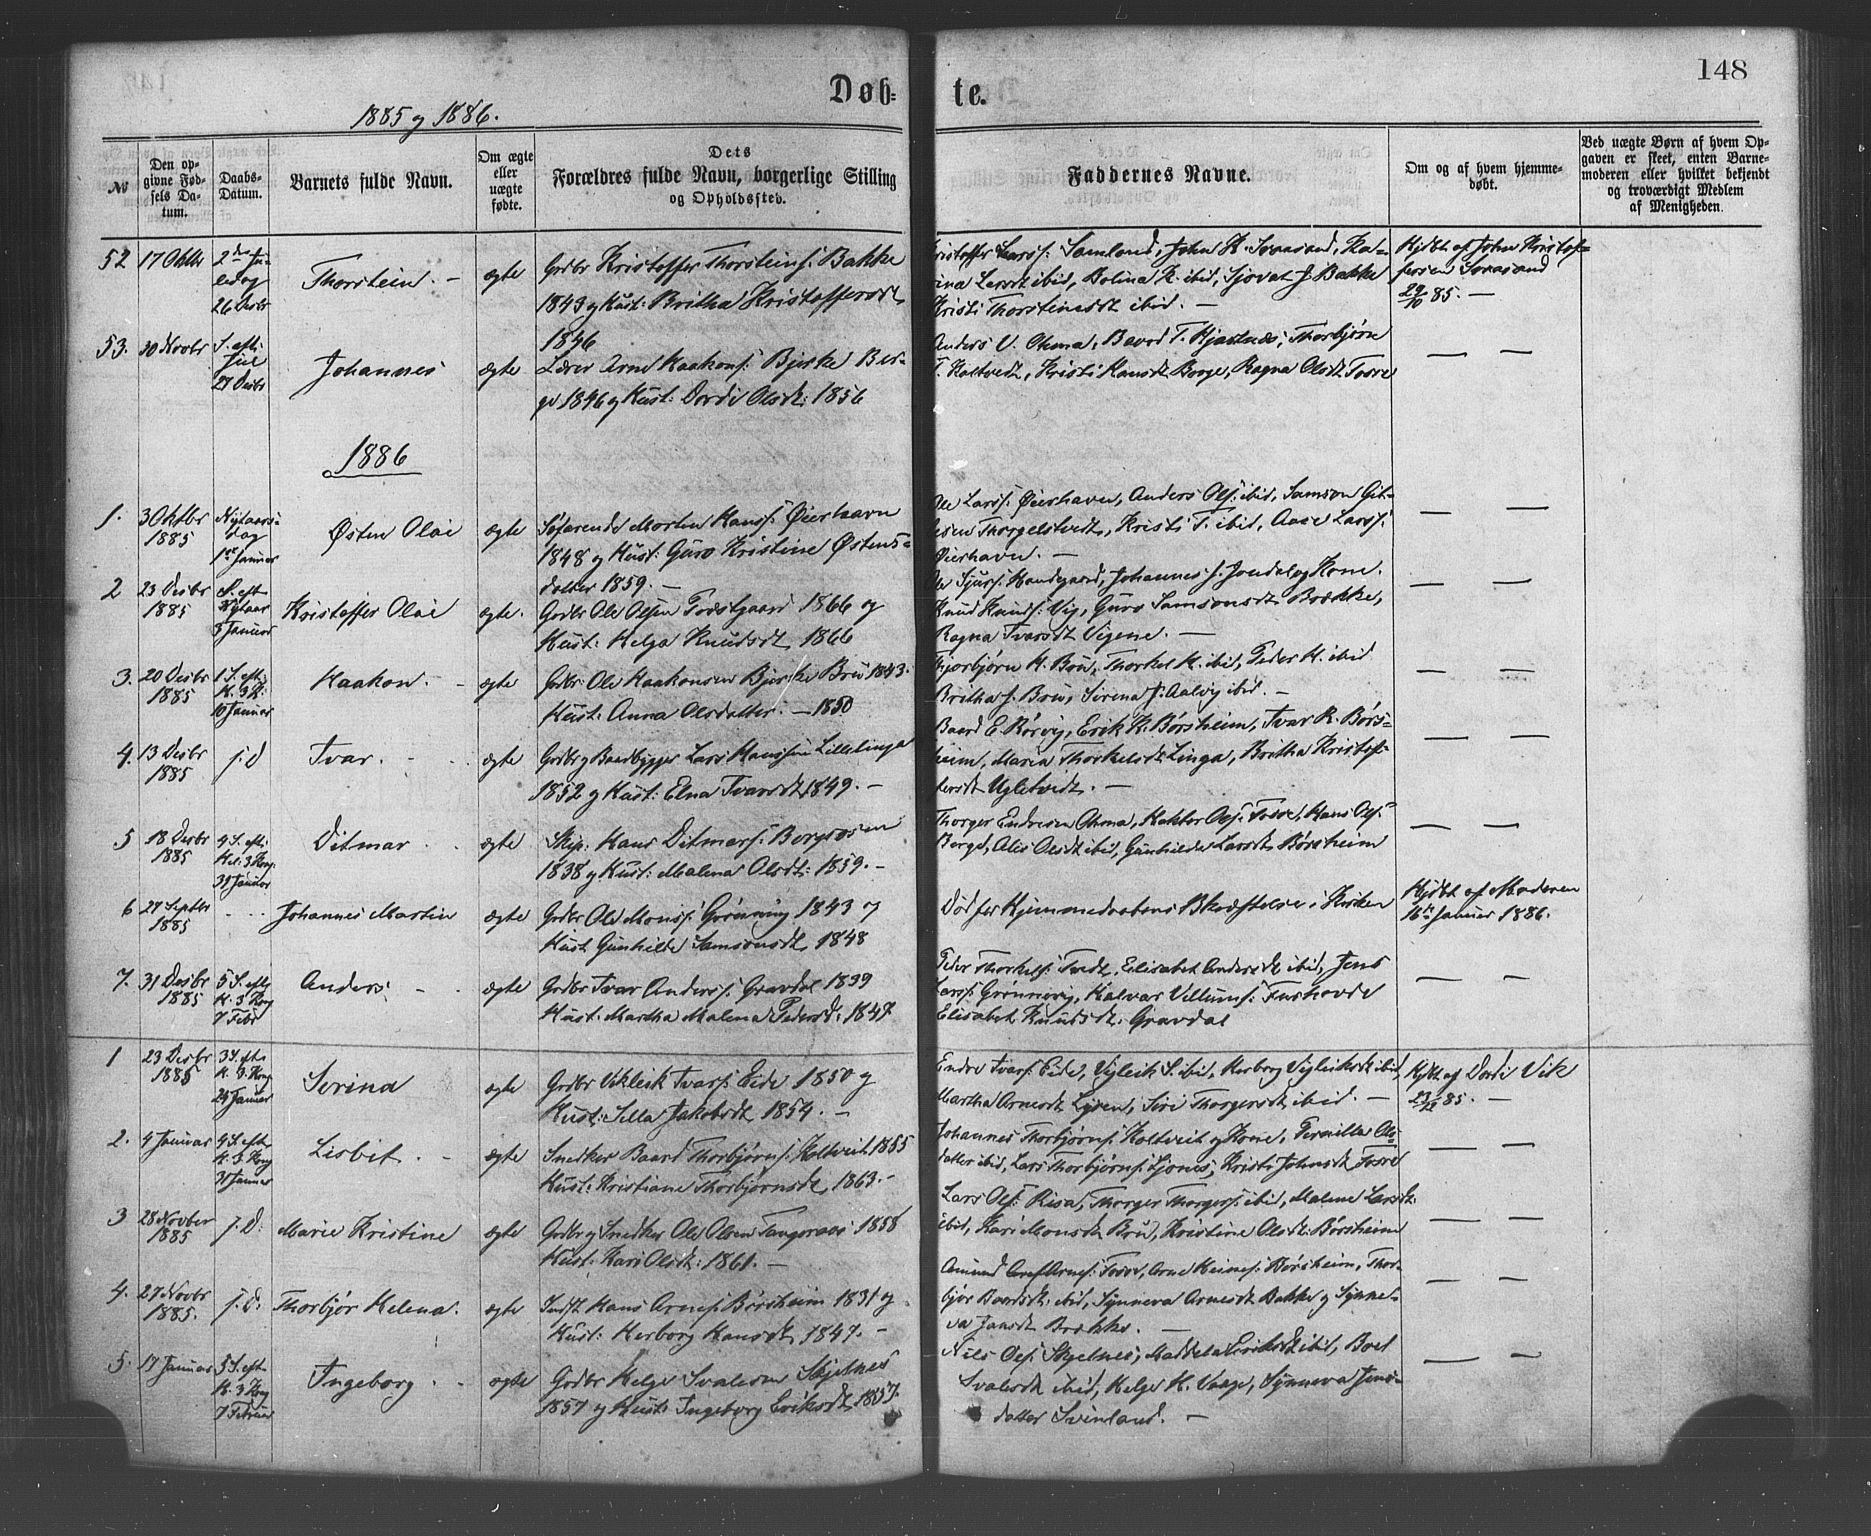 148
Døb= te.
1885 og 1886.
№ | Den op- givne Fød- sels Da- tum. | Daabs- Datum. | Barnets fulde Navn. | Om ægte eller uægte fødte. | Dets Forældres fulde Navn, borgerlige Stilling og Opholdssted. | Faddernes Navne. | Om og af hvem hjemme- døbt. | Ved uægte Børn af hvem Op- gaven er skeet, enten Barne- moderen eller hvilket bekjendt og troværdigt Medlem af Menigheden.
52 17 Oktbr 2den Ju- ledag 26 Desbr Thorstein. – ægte
Grdbr Kristoffer Thorsteins: Bakke
1843 og Hust: Britha Kristoffersdt
1846
Kristoffer Larss: Samland, John K. Svaasand, Ka-
rina Larsdt ibid, Bolina K. ibid, Sjovat J. Bakke
Kristi Thorsteinsdt ibid. –
Hjdbt af John Kristof-
fersen Svaasand
29/10 85. –
53. 10 Novbr S. eft: Jul 27 Desbr Johannes ægte
Lærer Arne Haakons: Bjerke Ber-
ge 1846 og Hust: Dordi Olsdt: 1856
Anders V. Thorbjørn
T. Holtvedt, Kristi Hansdt Berge, Ragna Olsdt Fosse
— —
1886
1. 3 Oktbr 1885 Nytaars- Dag 1ste Januar Østen Olai ægte
Søfarende Morten Hanss: Øierhavn
1848 og Hust: Guro Kristine Østens-
datter 1859. –
Ole Larss: Øierhavn, Anders Ols: ibid, Samson
Thorgelstvedt, Kristi T. ibid, Aase Larss:
Øierhavn. –
— —
2 23 Desbr 1885 S. eft Nytaar 3 Januar Kristoffer Olai ægte.
Grdbr Ole Olsen Tvedtgaard 1866 og
Hust: Helga Knudsdt 1866
Ole Sjurs: Handegaard, Johannes J. Jondal og Kone.
Knud Knuds: Vig, Guro Samsonsdt Brække,
Ragna Ivarsdt Vigene. –
— —
3. 20 Desbr 1885 1 S. eft: H. 3 K: 10 Januar Haakon. – ægte
Grdbr: Ole Haakonsen Bjerke Bru 1843.
Hust: Anna Olsdatter. – 1850
Thjorbjørn H. Bru, Thorkel H. ibid, Peder H. ibid
Britha J. Bru, Sirena J: Aalvig ibid. –
— —
4. 13 Desbr 1885 j. D Ivar. – ægte
Grdbr og Baadbygger Lars Hanssen Lillelinga
1852 og Hust: Elna Ivarsdt 1849. –
Baard E. Rørvig, Erik K. Børsheim, Ivar R. Børs-
heim, Maria Thorkelsdt Linga, Britha Kristof-
fersdt Ugletvidt. –
— —
5 18 Desbr 1885 4 S. eft: Hel: 3 Kong 31 Januar Ditmar. ægte
Skip: Hans Ditmars: Bergsosen
1838 og Hust: Malena Olsdt: 1859. –
Thorger Endresen Ols: Fosse, Hans Ols:
Berge, Alis Olsdt ibid, Gunhilde Larsdt Børsheim
— —
6 27 Septbr 1885 . . . Johannes Martin ægte
Grdbr Ole Monss: Grønning 1843 og
Hust Gunhilde Samsonsdt 1848
Død før Hjemmedaabens Bkræftelse i Kirken
Hjdbt af Moderen
16de Januar 1886.
7. 31 Desbr 1885 5 S. eft H. 3 Kong 7 Febr Anders – ægte
Grdbr Ivar Anderss: Gravdal 1839
Hust: Martha Malena Pedersdt: 1847
Peder Thorkels: Tvedt, Elisabet Andersdt ibid, Jens
Larss: Grønnevig, Halvar Villums: Furhovde
Elisabet Knudsdt Gravdal
— —
1 23 Desbr 1885 3 S. eft H. 3 Kong 24 Januar Serina ægte
Grdbr Vikleik Ivars: Eide 1850 og
Hust: Silla Jakobsdt 1854. –
Endre Ivars: Eide, Vigleik S. ibid, Herborg Vigleiksdt ibid,
Martha Arnesdt Lysen, Siri Thorgersdt ibid. –
Hjdbt af Dordi Vik
23/12 85. –
2. 4 Januar 4 S. eft H. 3 Kong 31 Januar Lisbet. – ægte
Snedker Baard Thorbjørns: Holtveit 1855
Hust: Kristiane Thorbjørnsdt 1863. –
Johannes Thorbjørns: Holtveit og Kone, Pernilla Ols-
datter ibid, Lars Thorbjørns: Ljones, Kristi Johnsdt Fosse
— —
3 28 Novber 1885 j. D: Marie Kristine ægte
Grdbr og Snedker Ole Olsen Tangeraas: 1858
Hust: Kari Olsdt: 1861. –
Lars Ols: Risa, Thorger Thorgers: ibid, Malene Larsdt
ibid, Kari Monsdt Bru, Kristine Olsdt: Børsheim
— —
4. 27 Novbr 1885. j. D: Thorbjør Helena. ægte
Indst. Hans Arnes: Børsheim 1831 og
Hust: Herborg Hansdt 1847. –
Amund Arnes: Fosse, Arne Heines: Børsheim, Thor-
bjør Baardsdt: ibid, Synneva Arnesdt Bakke og Synne-
va Jansdt Brække. –
— —
5. 17 Januar 5 S. eft H. 3 Kong 7 Februar Ingeborg. ægte
Grdbr Helge Svalesen Skjelnes
1857 og Hust: Ingeborg Eriksdt 1857.
Nils Ols: Skjelnes, Maddela Eriksdt ibid, Boel
Svalesdt ibid, Helge H. Vaage, Synneva Jens-
datter Svinland. –
— —